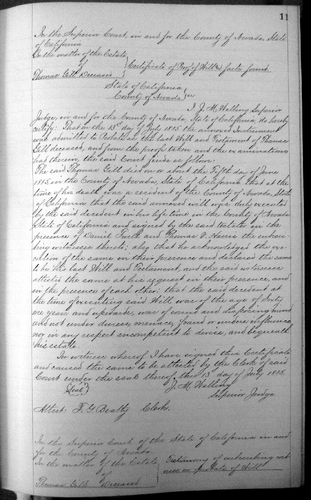 11
In the Superior Court in and for the County of Nevada, State
of California
In the matter of the Estate
of
Thomas Gill Deceased
Certificate of Proof of Will & facts found
State of California
County of Nevada } ss
I J. M. Walling Superior
Judge, in and for the County of Nevada State of California, do hereby
certify: That on the 13th day of July 1885 the annexed Instrument
was admitted to Probate as the last Will and Testament of Thomas
Gill deceased, and from the proofs taken and the examinations
had therein, the said Court finds as follows:
The said Thomas Gill died on or about the Fifth day of June
1885, in the County of Nevada, State of California, that at the
time of his death was a resident of the County of Nevada, State
of California that the said annexed will was duly executed
by the said decedent in his life time in the County of Nevada
State of California and signed by the said testator in the
presence of Daniel and the subscri-
bing witnesses thereto; also that he acknowledged the exe-
cution of the same in their presence and declared the same
to be his last Will and Testament, and the said witnesses
attested the same at his request in their presence, and
in the presence of each other; that the said decedent at
the time of executing said Will was of the age of
six years and upwards, was of sound and disposing mind
and not under duress, menace, fraud or undue influence
nor in any respect incompetent to devise, and bequeath
his estate.
In witness whereof I have signed this Certificate
and caused the same to be attested by the Clerk of said
Court under the seal thereof this 13th day of July 1885.
(Seal) J. M. Walling
Superior Judge
Attest F. G. Beatty Clerk.
In the Superior Court of the State of California in and
for the County of Nevada
In the matter of the Estate
of
Thomas Gill Deceased
Testimony of subscribing wit-
ness on Probate of Will